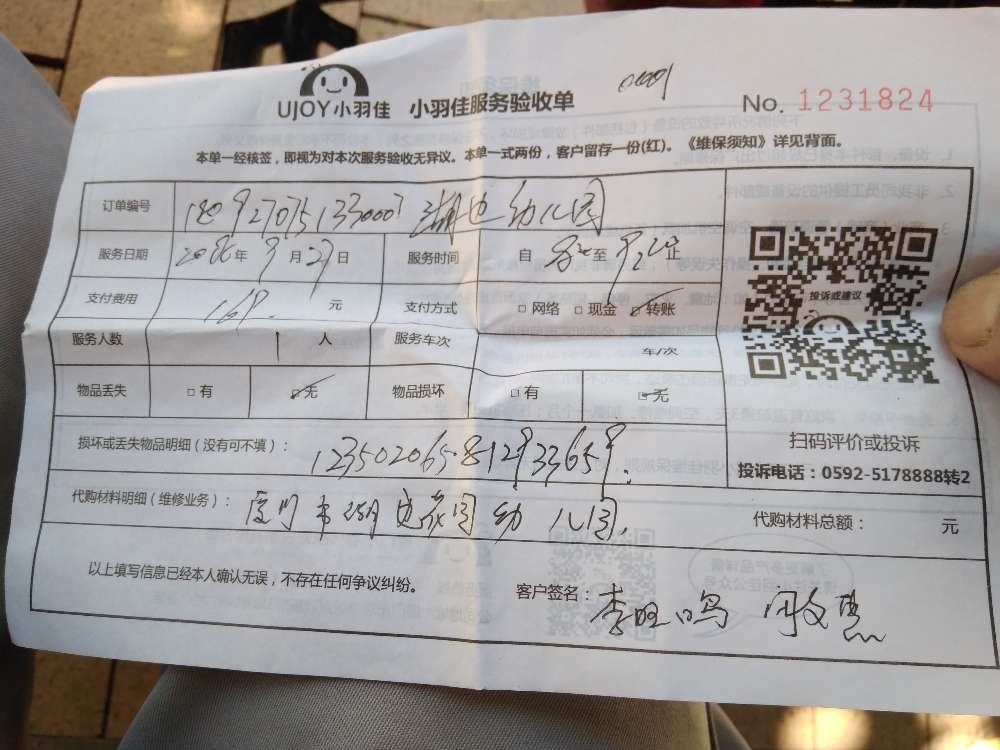 UJOY小羽佳 小羽佳服务验收单 No. 1231824
本单一经核签，即视为对本次服务验收无异议。本单一式两份，客户留存一份(红)。《维保须知》详见背面。
订单编号 幼儿园
服务日期 年9月27日 服务时间 自 至 止
支付费用 元 支付方式 □网络 □现金 □转账
服务人数 1 人 服务车次 车/次
物品丢失 □有 □无 物品损坏 □有 □无
投诉或建议
损坏或丢失物品明细（没有可不填）：
扫码评价或投诉
投诉电话：0592-5178888转2
代购材料明细（维修业务）：厦门市湖边花园幼儿园. 代购材料总额： 元
以上填写信息已经本人确认无误，不存在任何争议纠纷。 客户签名：李旺鸣